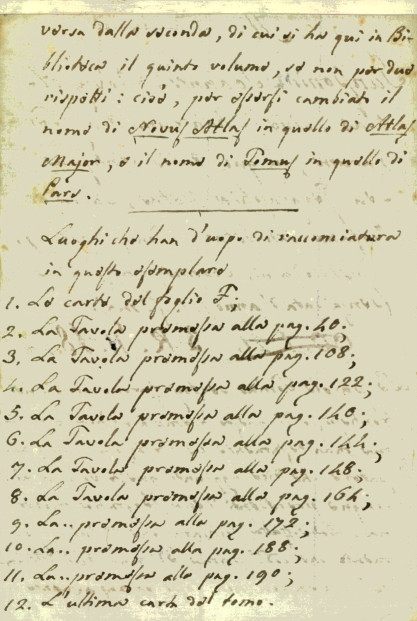 versa dalla seconda, di cui si ha qui in Bi-
blioteca il quinto volume, se non per due
rispetti: cioè, per essersi cambiato il
nome di Novus Atlas in quello di Atlas
Major, e il nome di Tomus in quello di
Pars.
Luoghi che han d'uopo di racconciatura
in questo esemplare
1. Le carte del foglio F;
2. La Tavola premessa alla pag. 40;
3. La Tavola premessa alla pag. 108;
4. La Tavola premessa alla pag. 122;
5. La Tavola premessa alla pag. 140;
6. La Tavola premessa alla pag. 144;
7. La Tavola premessa alla pag. 148;
8. La Tavola premessa alla pag. 164;
9. La.. premessa alla pag. 172;
10. La.. premessa alla pag. 188;
11. La.. premessa alla pag. 190;
12. L'ultima carta del tomo.